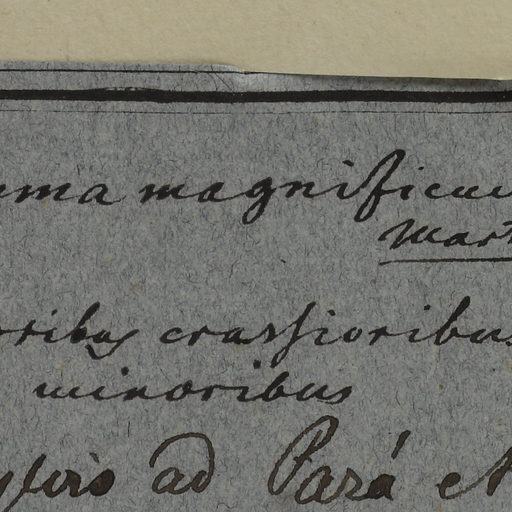 uma magnificum
Mart
oribus crassioribus
minoribus
ylvis ad Pará et